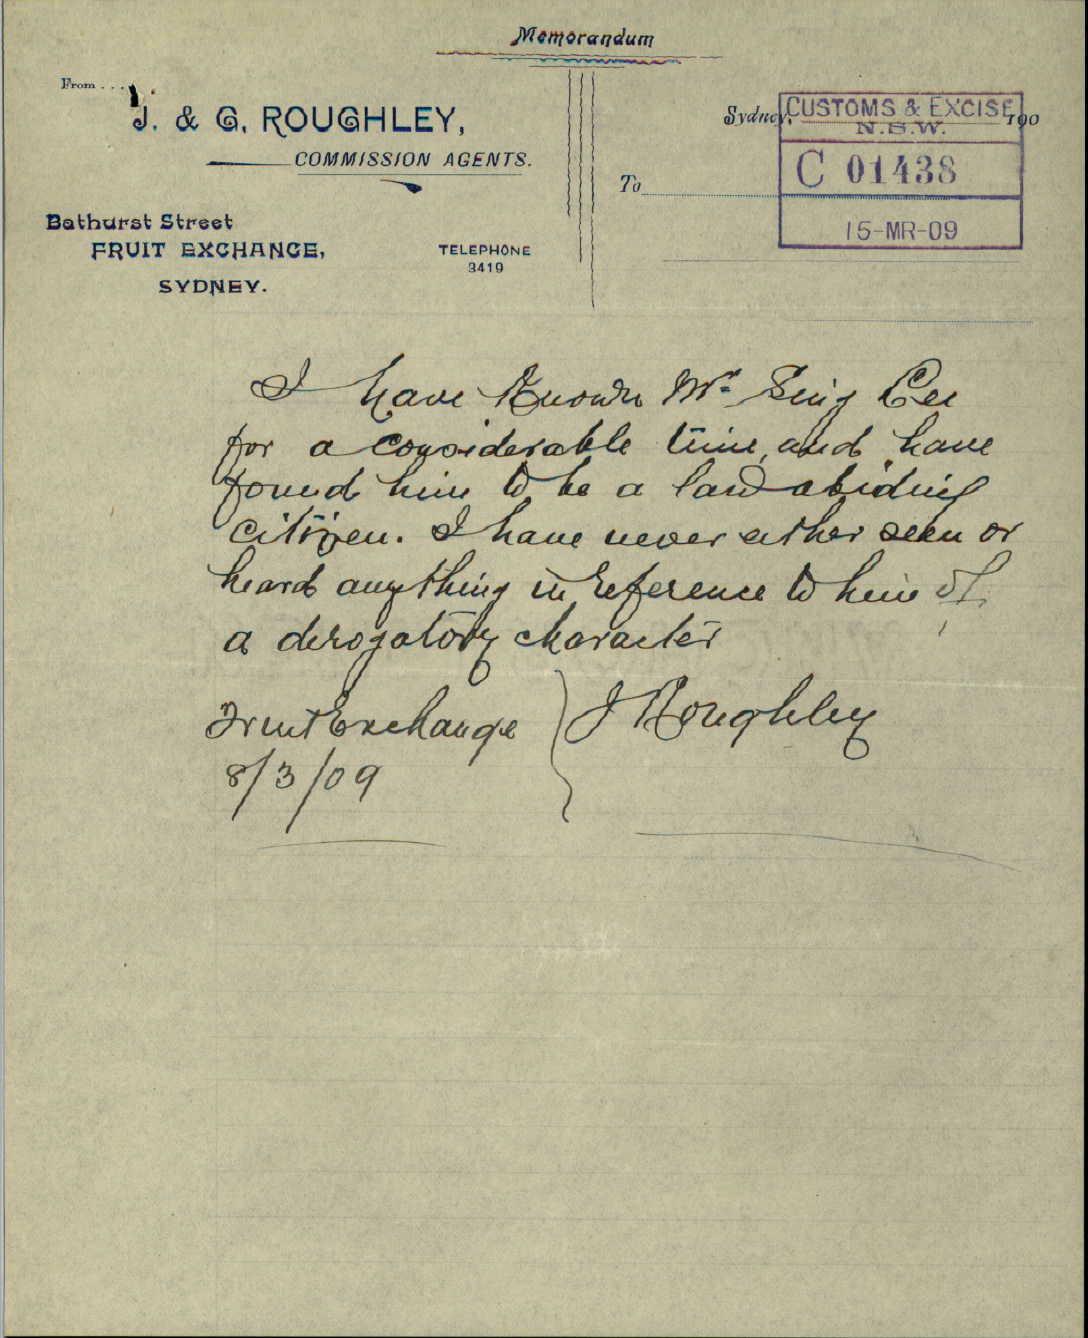 Memorandum
From . . .
J. & G. ROUGHLEY,
COMMISSION AGENTS.
Bathurst Street
FRUIT EXCHANGE,
SYDNEY.
TELEPHONE
3419
Sydney, 190
To
CUSTOMS & EXCISE
N.S.W.
C 01438
15-MR-09
I have Known Mr Sing Lee
for a considerable time, and have
found him to be a law abiding
citizen. I have never either seen or
heard anything in reference to him of
a derogatory character
Fruit Exchange
8/3/09
J Roughley